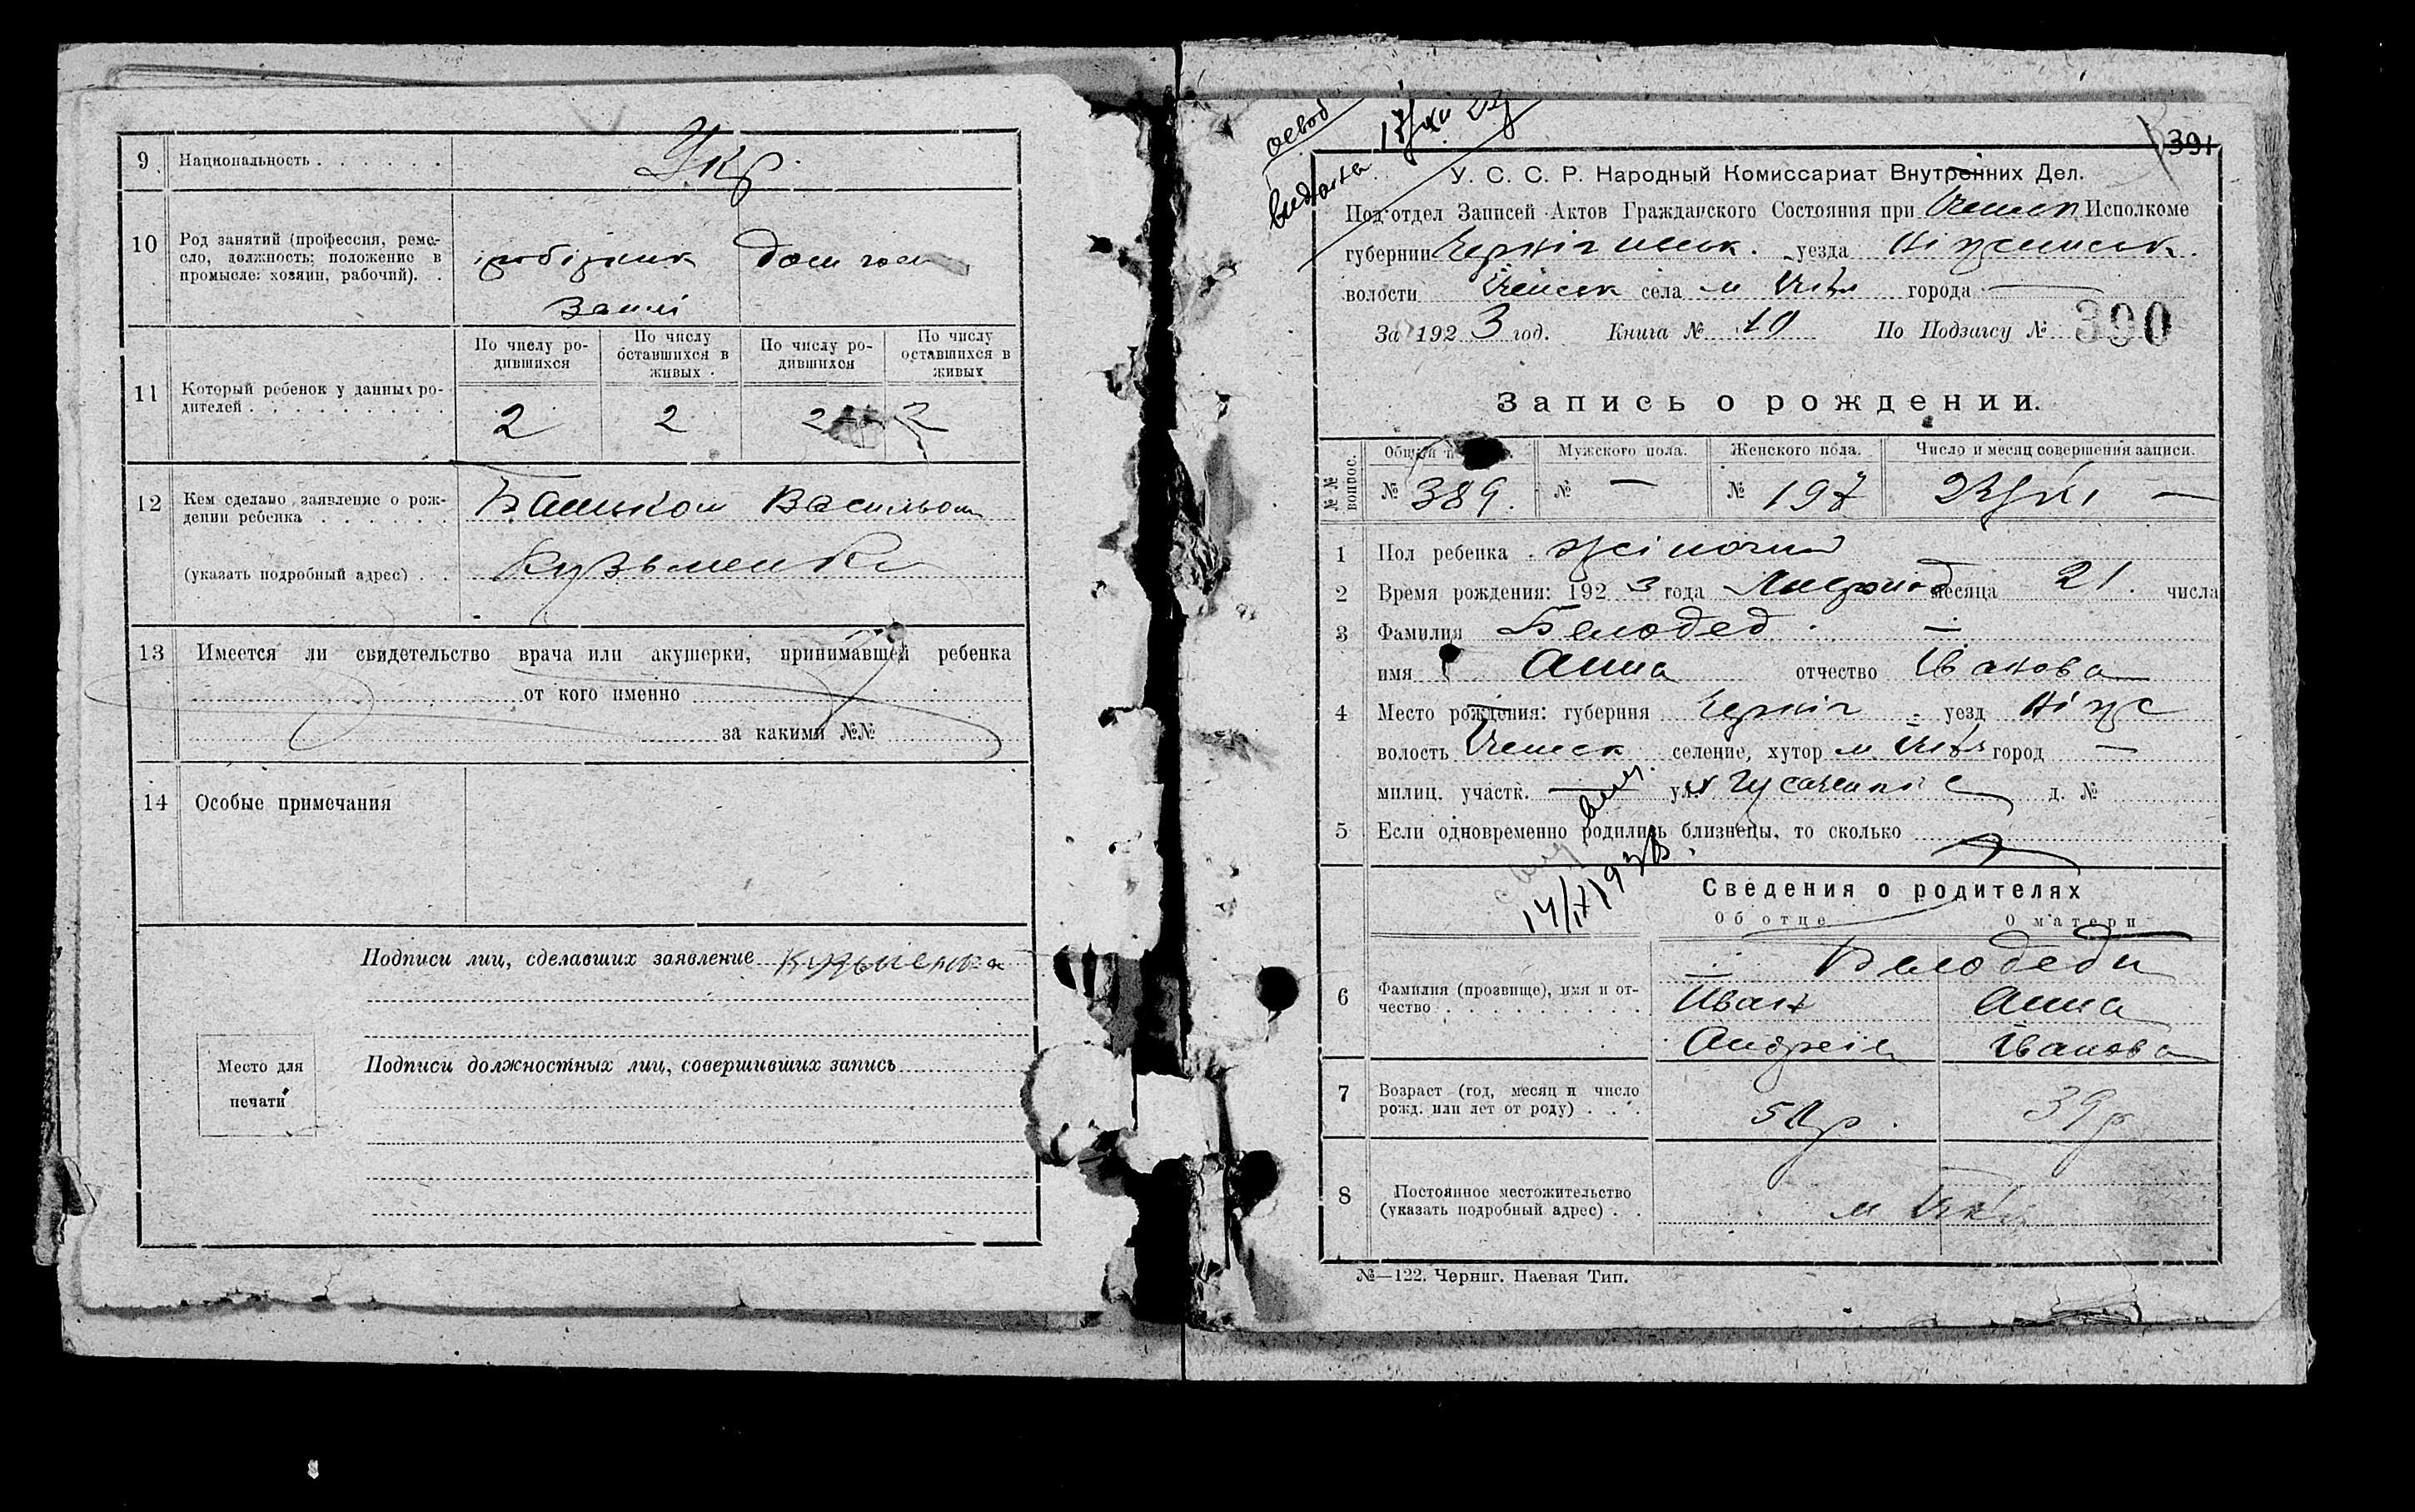 9 Национальность . . . . . . Укр.
10 Род занятий (профессия, реме-
сло, должность: положение в
промысле: хозяин, рабочий). .
землі
11 Который ребенок у данных ро-
дителей . . . . . . . . .
По числу ро-
дившихся
По числу
оставшихся в
живых
По числу ро-
дившихся
По числу
оставшихся в
живых
2 2 2 2
12 Кем сделано заявление о рож-
дении ребенка . . . . . . Батьком Васильом
(указать подробный адрес) . . Кузьменко
13 Имеется ли свидетельство врача или акушерки, принимавшей ребенка
от кого именно
за какими №№
14 Особые примечания
Подписи лиц, сделавших заявление Кузьменко
Место для
печати
Подписи должностных лиц, совершивших запись
391
видана 17/XII 23
У. С. С. Р. Народный Комиссариат Внутренних Дел.
Под'отдел Записей Актов Гражданского Состояния при Ичнен Исполкоме
губернии Чернігивськ. уезда Ніженськ.
волости Иченськ села м Ичня города —
За 1923 год. Книга № 10 По Подзагсу № 390
Запись о рождении.
№№ вопрос.
Общий Мужского пола. Женского пола. Число и месяц совершения записи.
№ 389. № — № 197 —
1 Пол ребенка . жіночий
2 Время рождения: 1923 года месяца 21. числа
3 Фамилия Белодед
имя Анна отчество Іванова
4 Место рождения: губерния Черніг. уезд Ніж
волость Иченск селение, хутор м. Ичня город —
милиц. участк. — ул. д. №
5 Если одновременно родились близнецы, то сколько
Сведения о родителях
Об отце О матери
6 Фамилия (прозвище), имя и от-
чество . . . . . . . . .
Белодеди
Иван Анна
Андреів Іванова
7 Возраст (год, месяц и число
рожд. или лет от роду) . . . 39р
8 Постоянное местожительство
(указать подробный адрес) . . м Ичня
№—122. Черниг. Паевая Тип.